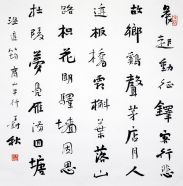 晨起動征鐸客行悲
故鄉鷄聲茅店月人
迹板橋霜槲葉落山
路枳花明驛墻因思
杜陵夢鳧雁滿回塘
温庭筠商山早行 秋